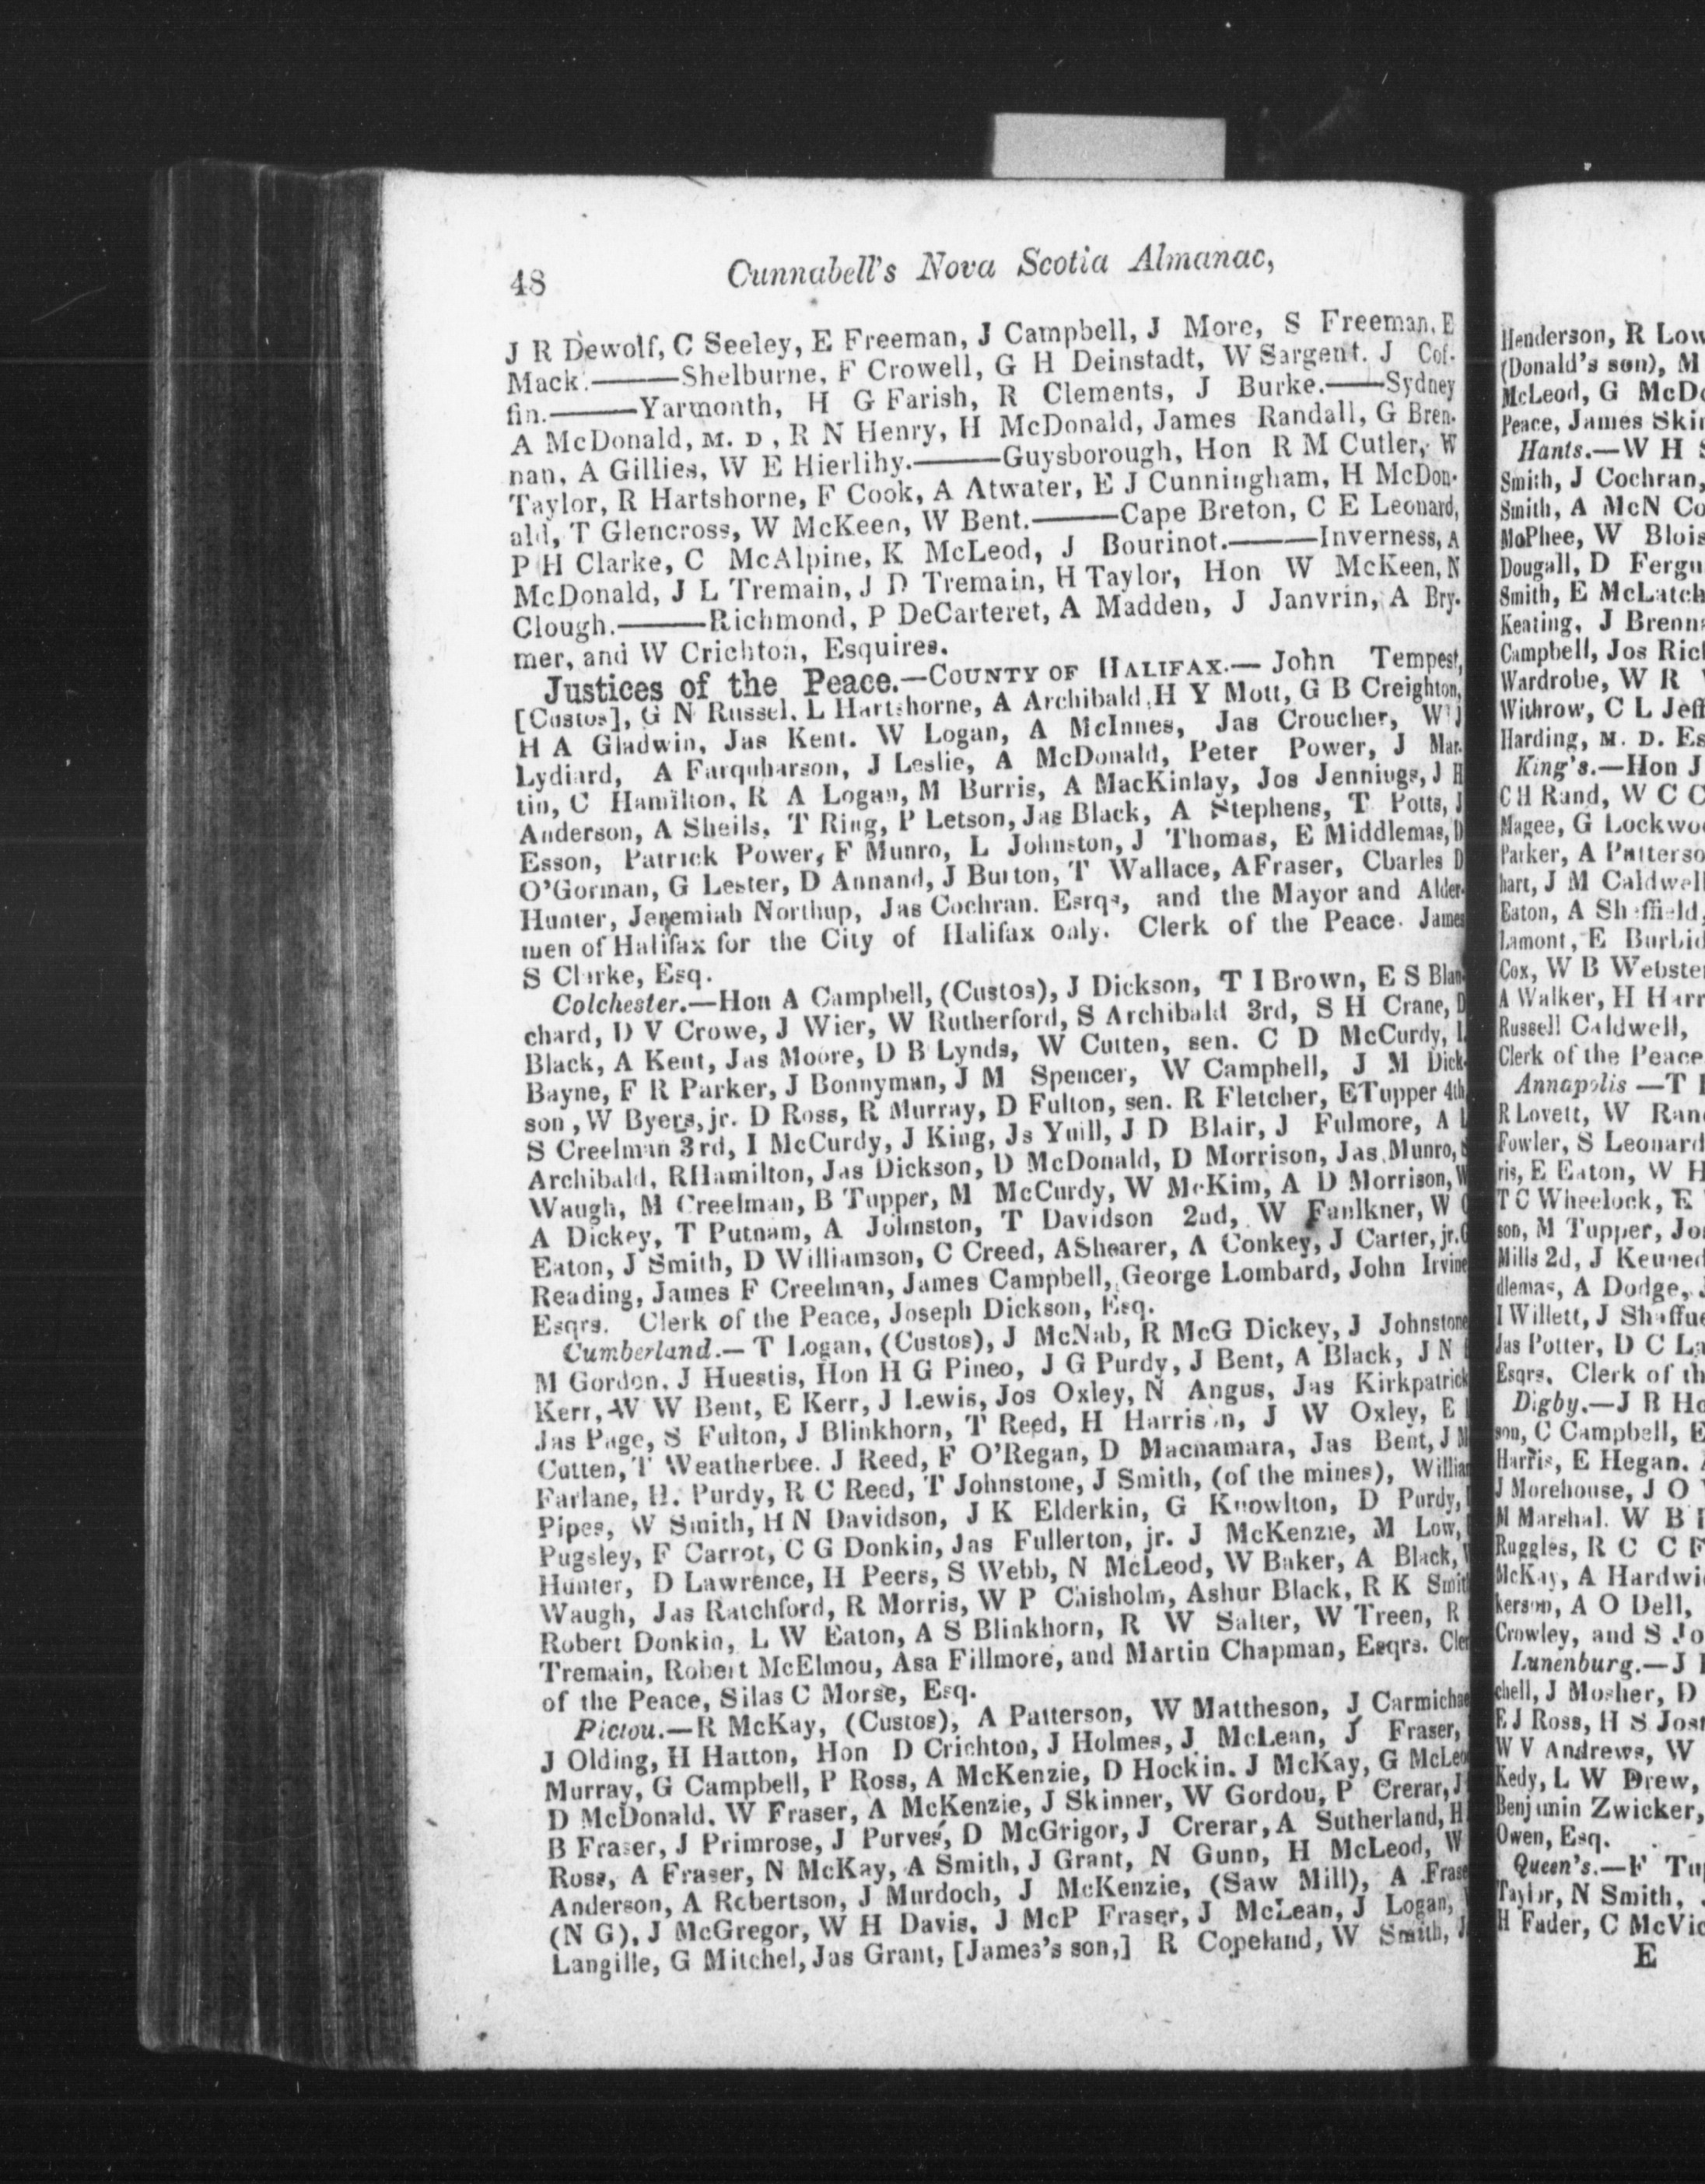 48
Cunnabell's Nova Scotia Almanac,
J R Dewolf, C Seeley, E Freeman, J Campbell, J More, S Freeman, E
Mack.——Shelburne, F Crowell, G H Deinstadt, W Sargent. J Cof-
fin.——Yarmonth, H G Farish, R Clements, J Burke.——Sydney
A McDonald, M. D, R N Henry, H McDonald, James Randall, G Bren-
nan, A Gillies, W E Hierlihy.——Guysborough, Hon R M Cutler, W
Taylor, R Hartshorne, F Cook, A Atwater, E J Cunningham, H McDon-
ald, T Glencross, W McKeen, W Bent.——Cape Breton, C E Leonard,
P H Clarke, C McAlpine, K McLeod, J Bourinot.——Inverness, A
McDonald, J L Tremain, J D Tremain, H Taylor, Hon W McKeen, N
Clough.——Richmond, P DeCarteret, A Madden, J Janvrin, A Bry-
mer, and W Crichton, Esquires.
Justices of the Peace.—COUNTY OF HALIFAX.— John Tempest,
[Custos], G N Russel. L Hartshorne, A Archibald, H Y Mott, G B Creighton,
H A Gladwin, Jas Kent. W Logan, A McInnes, Jas Croucher, W J
Lydiard, A Farquharson, J Leslie, A McDonald, Peter Power, J Mar-
tin, C Hamilton, R A Logan, M Burris, A MacKinlay, Jos Jennings, J H
Anderson, A Sheils, T Ring, P Letson, Jas Black, A Stephens, T Potts, J
Esson, Patrick Power, F Munro, L Johnston, J Thomas, E Middlemas, D
O'Gorman, G Lester, D Annand, J Burton, T Wallace, AFraser, Charles D
Hunter, Jeremiah Northup, Jas Cochran. Esrqs, and the Mayor and Alder-
men of Halifax for the City of Halifax only. Clerk of the Peace. James
S Clarke, Esq.
Colchester.—Hon A Campbell, (Custos), J Dickson, T I Brown, E S Blan-
chard, D V Crowe, J Wier, W Rutherford, S Archibald 3rd, S H Crane, D
Black, A Kent, Jas Moore, D B Lynds, W Cutten, sen. C D McCurdy, I.
Bayne, F R Parker, J Bonnyman, J M Spencer, W Campbell, J M Dick-
son, W Byers, jr. D Ross, R Murray, D Fulton, sen. R Fletcher, ETupper 4th
S Creelman 3rd, I McCurdy, J King, Js Yuill, J D Blair, J Fulmore, A L
Archibald, RHamilton, Jas Dickson, D McDonald, D Morrison, Jas Munro,
Waugh, M Creelman, B Tupper, M McCurdy, W McKim, A D Morrison, W
A Dickey, T Putnam, A Johnston, T Davidson 2ud, W Faulkner, W
Eaton, J Smith, D Williamson, C Creed, AShearer, A Conkey, J Carter, jr.
Reading, James F Creelman, James Campbell, George Lombard, John Irvine
Esqrs. Clerk of the Peace, Joseph Dickson, Esq.
Cumberland.—T Logan, (Custos), J McNab, R McG Dickey, J Johnstone
M Gordon. J Huestis, Hon H G Pineo, J G Purdy, J Bent, A Black, J N
Kerr, W W Bent, E Kerr, J Lewis, Jos Oxley, N Angus, Jas Kirkpatrick
Jas Page, S Fulton, J Blinkhorn, T Reed, H Harrison, J W Oxley, E
Cutten, T Weatherbee. J Reed, F O'Regan, D Macnamara, Jas Bent, J M
Farlane, H. Purdy, R C Reed, T Johnstone, J Smith, (of the mines), William
Pipes, W Smith, H N Davidson, J K Elderkin, G Knowlton, D Purdy,
Pugsley, F Carrot, C G Donkin, Jas Fullerton, jr. J McKenzie, M Low,
Hunter, D Lawrence, H Peers, S Webb, N McLeod, W Baker, A Black,
Waugh, Jas Ratchford, R Morris, W P Chisholm, Ashur Black, R K Smith
Robert Donkin, L W Eaton, A S Blinkhorn, R W Salter, W Treen, R
Tremain, Robert McElmou, Asa Fillmore, and Martin Chapman, Esqrs. Cler
of the Peace, Silas C Morse, Esq.
Pictou.—R McKay, (Custos), A Patterson, W Mattheson, J Carmichae
J Olding, H Hatton, Hon D Crichton, J Holmes, J McLean, J Fraser,
Murray, G Campbell, P Ross, A McKenzie, D Hockin. J McKay, G McLeo
D McDonald. W Fraser, A McKenzie, J Skinner, W Gordou, P Crerar, J
B Fraser, J Primrose, J Purves, D McGrigor, J Crerar, A Sutherland, H
Ross, A Fraser, N McKay, A Smith, J Grant, N Gunn, H McLeod, W
Anderson, A Robertson, J Murdoch, J McKenzie, (Saw Mill), A Frase
(N G), J McGregor, W H Davis. J McP Fraser, J McLean, J Logan,
Langille, G Mitchel, Jas Grant, [James's son,] R Copeland, W Smith, J
Henderson, R Low
(Donald's son), M
McLeod, G McDo
Peace, James Skin
Hants.—W H S
Smith, J Cochran,
Smith, A McN Co
McPhee, W Blois
Dougall, D Fergu
Smith, E McLatch
Keating, J Brenna
Campbell, Jos Ric
Wardrobe, W R
Withrow, C L Jeff
Harding, M. D. Es
King's.—Hon J
C H Rand, W C C
Magee, G Lockwoo
Parker, A Patterso
hart, J M Caldwell
Eaton, A Sheffield,
Lamont, E Burbid
Cox, W B Webster
A Walker, H Harr
Russell Caldwell,
Clerk of the Peace
Annapolis —T
R Lovett, W Ran
Fowler, S Leonard
ris, E Eaton, W H
T C Wheelock, E
son, M Tupper, Jo
Mills 2d, J Kenned
dlemas, A Dodge,
I Willett, J Shaffne
Jas Potter, D C La
Esqrs, Clerk of th
Digby.—J B Ho
son, C Campbell, E
Harris, E Hegan.
J Morehouse, J O
M Marshal. W B
Ruggles, R C C F
McKay, A Hardwi
kerson, A O Dell,
Crowley, and S Jo
Lunenburg.—J
chell, J Mosher, D
E J Ross, H S Jost
W V Andrews, W
Kedy, L W Drew,
Benjamin Zwicker,
Owen, Esq.
Queen's.—F Tu
Taylor, N Smith,
H Fader, C McVic
E